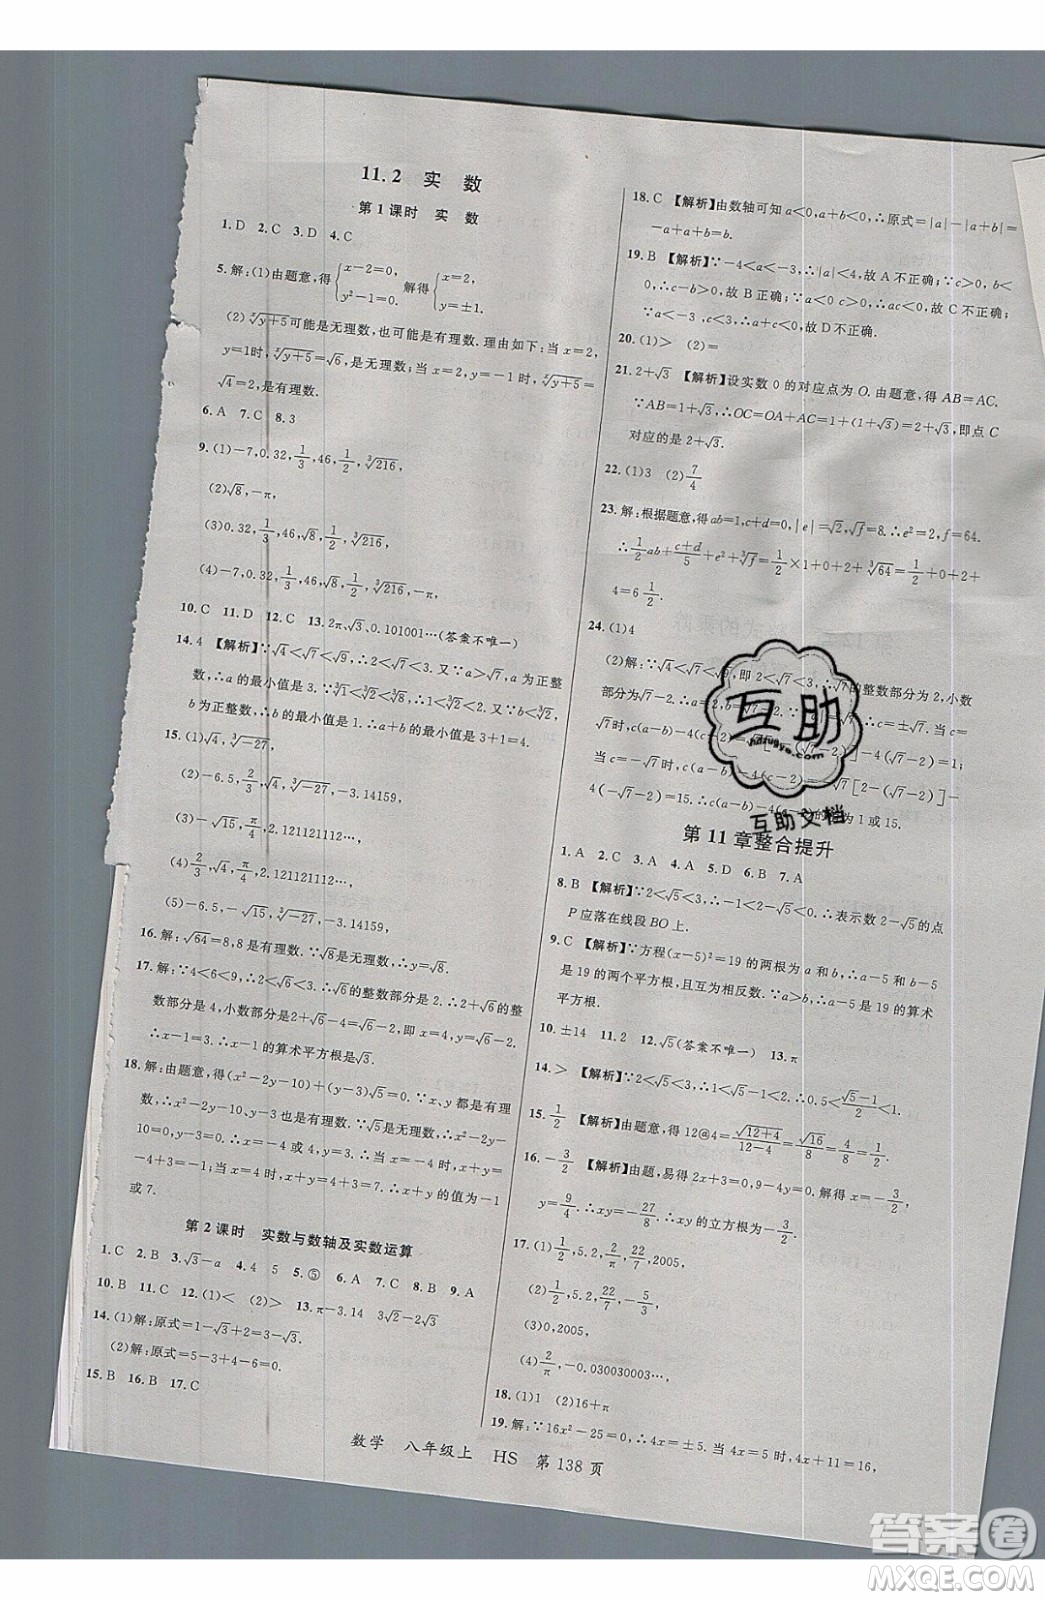 11.2 实 数
第1课时 实 数
1.D 2.C 3.D 4.C
5.解:(1)由题意,得{x-2=0, y²-1=0. 解得{x=2, y=±1.
(2)可能是无理数,也可能是有理数.理由如下:当x=2,
y=1时,=√6,是无理数;当x=2,y=-1时,
√4=2,是有理数.
6.A 7.C 8.3
9.(1)-7,0.32,1/3,46,1/2,∛216,
(2)√8,-π,
(3)0.32,1/3,46,√8,1/2,∛216,
(4)-7,0.32,1/3,46,√8,1/2,∛216,-π,
10.C 11.D 12.C 13.2π,√3,0.101001…(答案不唯一)
14.4 【解析】∵√4<√7<√9,∴2<√7<3.又∵a>√7,a为正整
数,∴a的最小值是3.∵∛1<∛2<∛8,∴1<∛2<2.又∵b<∛2,
b为正整数,∴b的最小值是1.∴a+b的最小值是3+1=4.
15.(1)√4,∛-27,
(2)-6.5,∛-27,-3.14159,
(3)-√15,2.121121112…,
(4)2/3,√4,1/2,2.121121112…,
(5)-6.5,-√15,∛-27,-3.14159.
16.解:√64=8,8是有理数.∵√8是无理数,∴y=√8.
17.解:∵4<6<9,∴2<√6<3.∴√6的整数部分是2.∴2+√6的整
数部分是4,小数部分是2+√6-4=√6-2,即x=4,y=√6-2.
∴x-1=3.∴x-1的算术平方根是√3.
18.解:由题意,得(x²-2y-10)+(y-3)√5=0.∵x、y都是有理
数,∴x²-2y-10、y-3也是有理数.∵√5是无理数,∴x²-2y-
10=0,y-3=0.∴x=-4或4,y=3.当x=-4时,x+y=
-4+3=-1;当x=4时,x+y=4+3=7.∴x+y的值为-1
或7.
第2课时 实数与数轴及实数运算
1.C 2.B 3.√3-a 4.4 5 5.⑤ 6.A 7.C 8.B 9.A
10.B 11.C 12.(1)< (2)> 13.π-3.14 3√2-2√3
14.(1)解:原式=1-√3+2=3-√3.
(2)解:原式=5-3+4-6=0.
15.B 16.B 17.C
18.C 【解析】由数轴可知a<0,a+b<0,∴原式=|a|-|a+b|=
-a+a+b=b.
19.B 【解析】∵-4<a<-3,∴|a|<4,故A不正确;∵c>0,b
<0,c-b>0,故B正确;∵a<0,c>0,∴ac<0,故C不正确;
∵a<-3,c<3,∴a+c<0,故D不正确.
20.(1)> (2)=
21.2+√3 【解析】设实数0的对应点为O.由题意,得AB=AC.
∵AB=1+√3,∴OC=OA+AC=1+(1+√3)=2+√3,即点C
对应的是2+√3.
22.(1)3 (2)7/4
23.解:根据题意,得ab=1,c+d=0,|e|=√2,√f=8.∴e²=2,f=64.
∴1/2ab+(c+d)/5+e²+∛f=1/2×1+0+2+∛64=1/2+0+2+
4=6 1/2.
24.(1)4
(2)解:∵√4<√7<√9,即2<√7<3,∴√7的整数部分为2,小数
部分为√7-2,即a=2,b=√7-2.∴c=±√7.当c=
√7时,c(a-b)-4(c+b-2)=√7[2-(√7-2)]-4(√7+√7-2-2)=1;
当c=-√7时,c(a-b)-4(c+b-2)=-√7[2-(√7-2)]-
4(-√7+√7-2-2)=15.∴c(a-b)-4(c+b-2)的值为1或15.
第11章整合提升
1.A 2.C 3.A 4.A 5.D 6.B 7.A
8.B 【解析】∵2<√5<3,∴-1<2-√5<0.∴表示数2-√5的点
P应落在线段BO上.
9.C 【解析】∵方程(x-5)²=19的两根为a和b,∴a-5和b-5
是19的两个平方根,且互为相反数.∵a>b,∴a-5是19的算术
平方根.
10.±14 11.2 12.√5(答案不唯一) 13.π
14.> 【解析】∵2<√5<3,∴1<√5-1<2.∴0.5<(√5-1)/2<1.
15.1/2 【解析】由题意,得12@4=√(12+4)/(12-4)=√16/8=4/8=1/2.
16.-3/2 【解析】由题,易得2x+3=0,9-4y=0.∴x=-3/2,
y=9/4.∴xy=-27/8.∴xy的立方根为-3/2.
17.(1)1/2,5.2,2/π,22/7,2005,
(2)1/2,5.2,22/7,-5/3,
(3)0,2005,
(4)2/π,-0.030030003…,
18.(1)1 (2)16+π
19.解:∵16x²-25=0,∴4x=±5.当4x=5时,4x+11=16,
数学 八年级上 HS 第138页
互助
hdzuoye.com
互助文档
答案卷
MXQE.COM